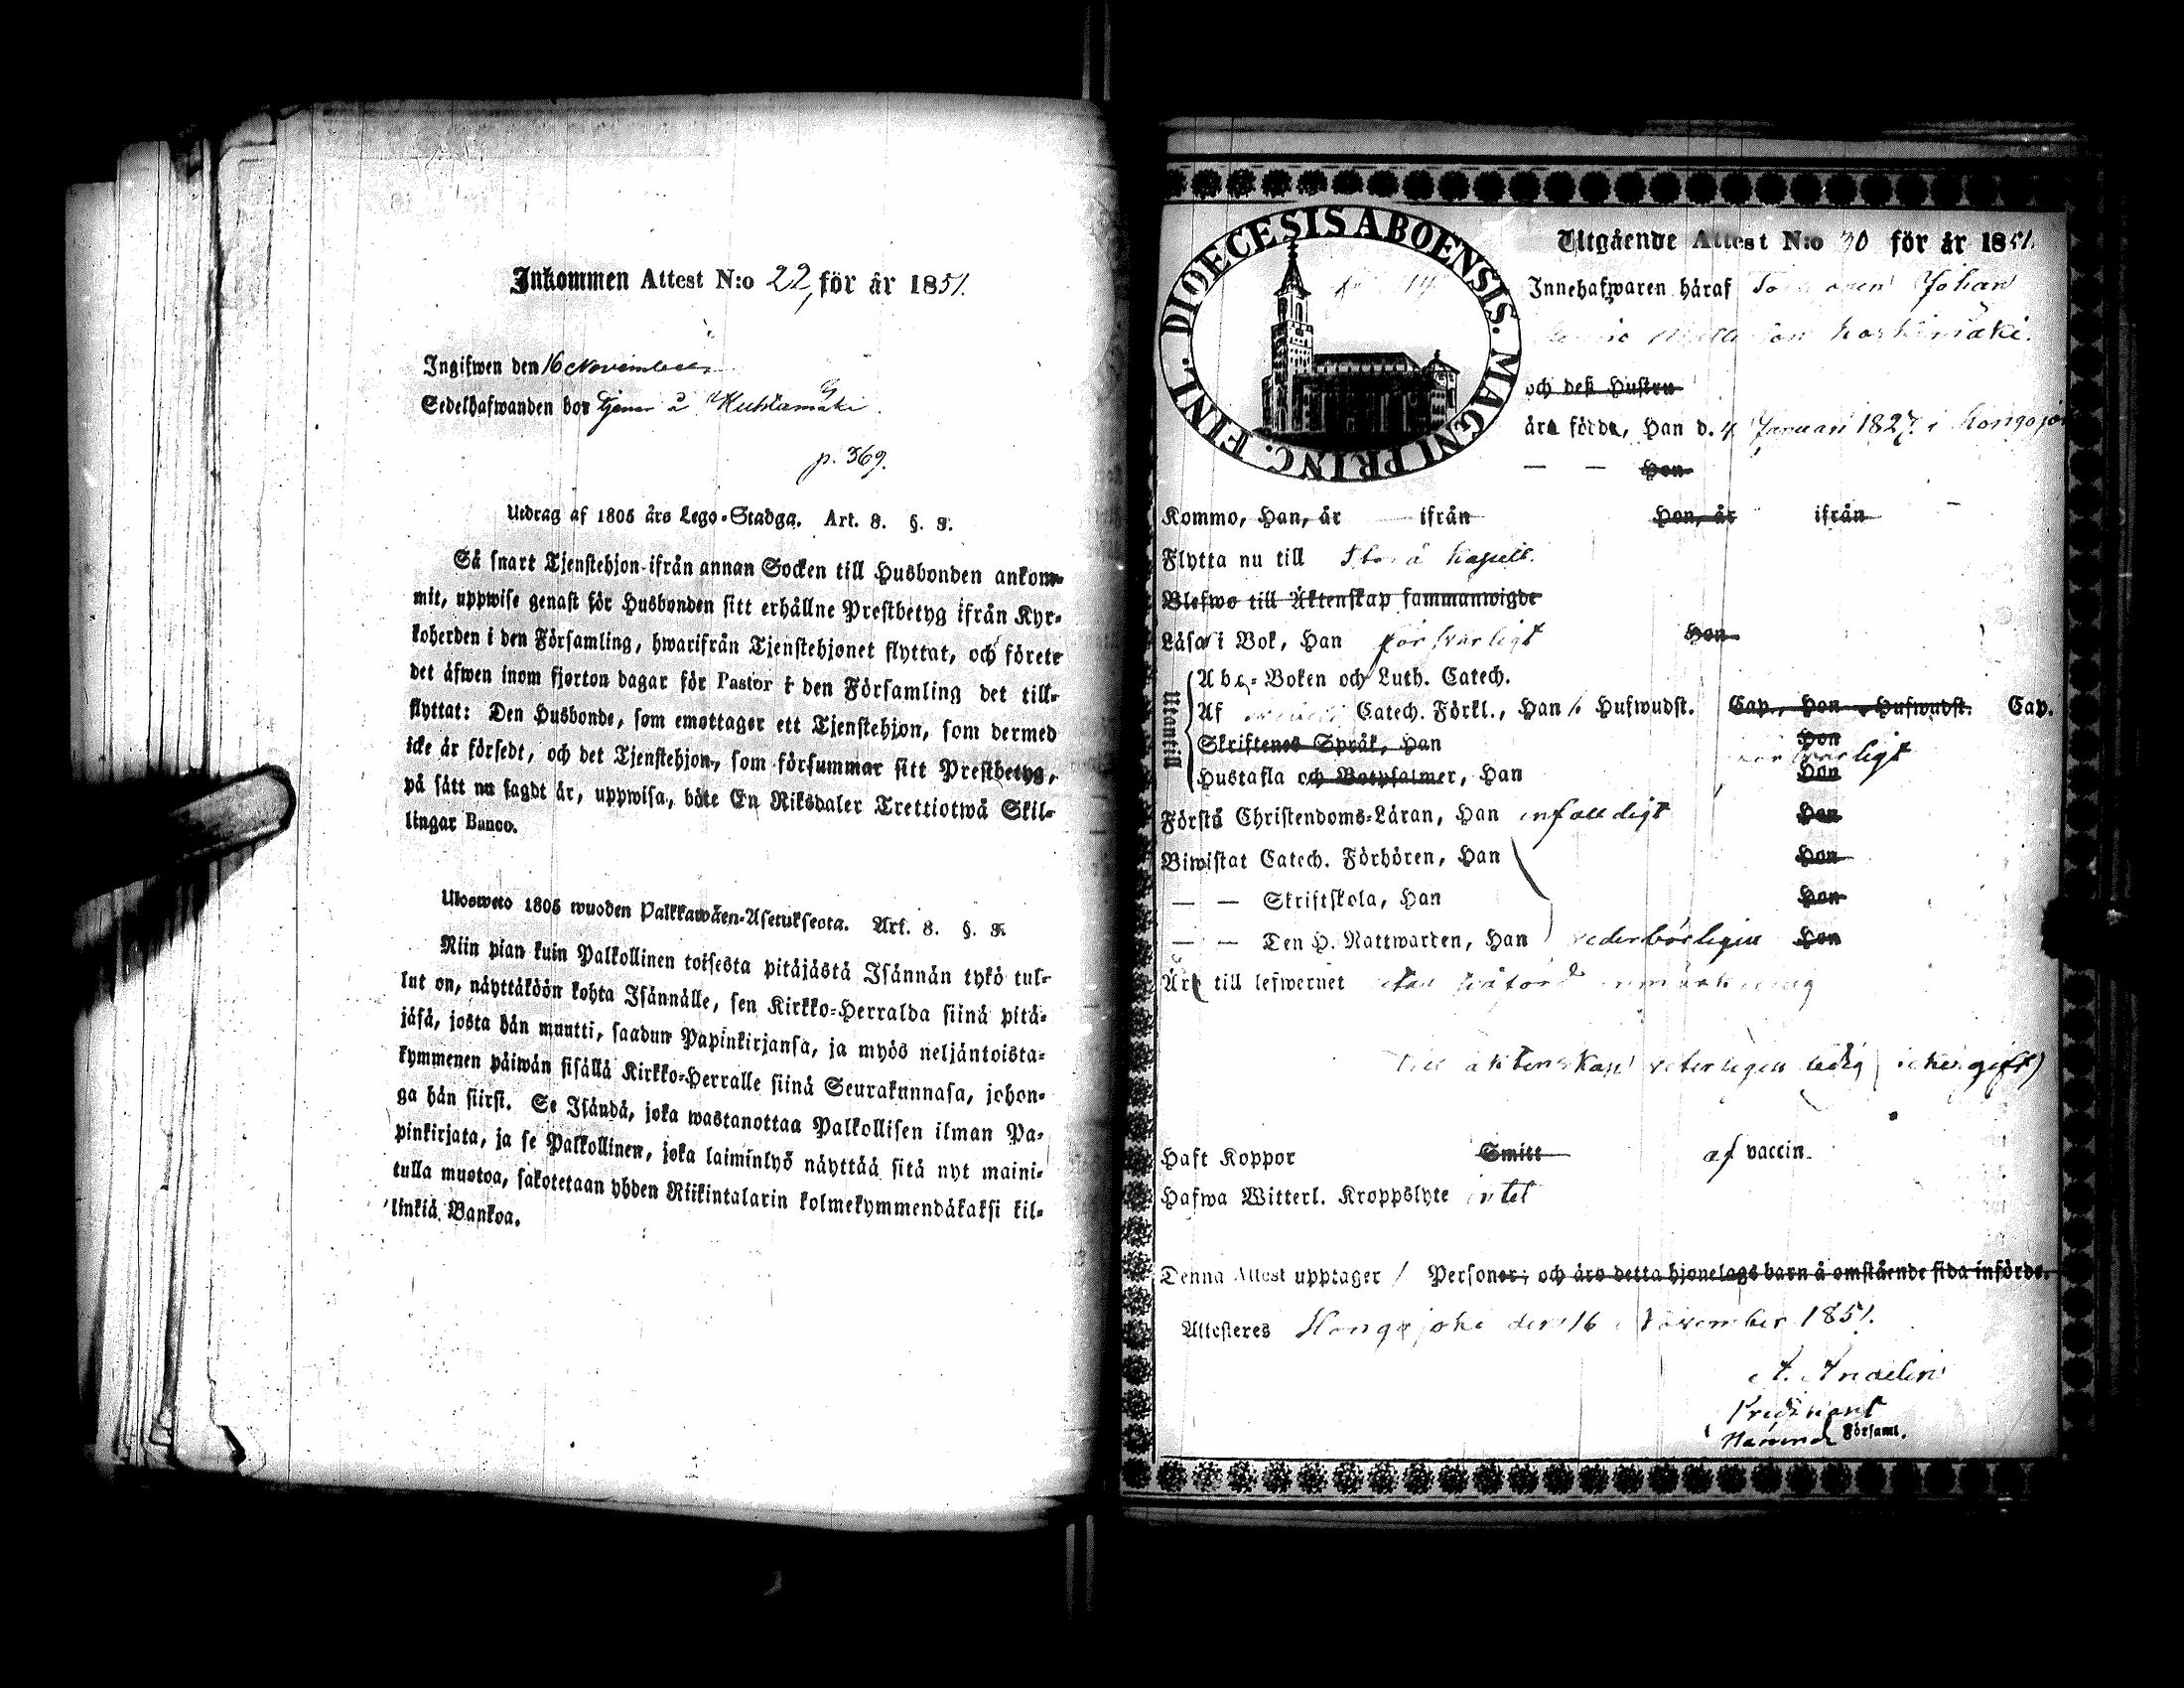 Inkommen Attest N:o 22, för år 1851.
Ingifwen den 16 November
Sedelhafwanden bor tjenar å
p. 369.
Utdrag af 1805 års Lego-Stadga. Art. 8. §. 8.
Så snart Tjenstehjon ifrån annan Socken till Husbonden ankom-
mit, uppwise genast för Husbonden sitt erhållne Prestbetyg ifrån Kyr-
koherden i den Församling, hwarifrån Tjenstehjonet flyttat, och förete
det äfwen inom fjorton dagar för Pastor i den Församling det till-
flyttat: Den Husbonde, som emottager ett Tjenstehjon, som dermed
icke är försedt, och det Tjenstehjon, som försummar sitt Prestbetyg,
på sätt nu sagdt är, uppwisa, böte En Riksdaler Trettiotwå Skil-
lingar Banco.
Ulosweto 1805 wuoden Palkkawäen-Asetuksesta. Art. 8. §. 8.
Niin pian kuin Palkollinen toisesta pitäjästä Isännän tykö tul-
lut on, näyttäköön kohta Isännälle, sen Kirkko-Herralda siinä pitä-
jäsä, josta hän muutti, saadun Papinkirjansa, ja myös neljäntoista-
kymmenen päiwän sisällä Kirkko-Herralle siinä Seurakunnasa, johon-
ga hän siirst. Se Isändä, joka wastanottaa Palkollisen ilman Pa-
pinkirjata, ja se Palkollinen, joka laiminlyö näyttää sitä nyt maini-
tulla muotoa, sakotetaan yhden Riikintalarin kolmekymmendäkaksi kil-
linkiä Bankoa.
DIOECESIS ABOENSIS. MAGNI PRINC. FINL.
Utgående Attest N:o 30 för år 1851.
Innehafwaren häraf Johan
och deß Hustru
äro födde, Han d. 4 Januari 1827. i
— — Hon
Kommo, Han, år ifrån Hon, år ifrån
Flytta nu till Storå Kapell.
Blefwo till Äktenskap sammanwigde
Läsa i Bok, Han försvarligt Hon
Utantill
Abc-Boken och Luth. Catech.
Af Catech. Förkl., Han Hufwudst. Cap., Hon Hufwudst. Cap.
Skriftenes Språk, Han Hon
Hustafla och Botpsalmer, Han försvarligt Hon
Förstå Christendoms-Läran, Han enfalldigt Hon
Biwistat Catech. Förhören, Han Hon
— — Skriftskola, Han Hon
— — Den H. Nattwarden, Han vederbörligen Hon
Äro till lefwernet utan anmärkning
Till äktenskap veterligen ledig
Haft Koppor Smitt af vaccin.
Hafwa Witterl. Kroppslyte intet
Denna Attest upptager 1 Personer; och äro detta hjonelags barn å omstående sida införde.
Attesteras den 16 November 1851.
Predikant
Församl.